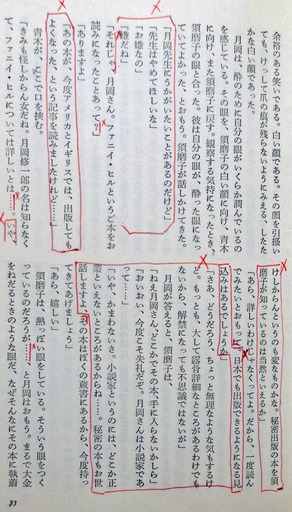 余裕のある笑いである。白い顔である。その顔を引掻い
ても、けっして爪の痕が残らないようにみえる、したた
かな白い顔であった。
月岡は、酔のために自分の眼がいくらか潤んでいるの
を感じている。その眼を、須磨子の白い顔に向け、青木
に向け、また須磨子に戻す。観察する気持になったとき、
須磨子の眼と合った。彼は自分の眼が、酔った眼になっ
ていてよかった、とおもう。須磨子が話しかけてきた。
「月岡先生にうかがいたいことがあるのだけど」
「先生はやめてほしいな」
「お嫌なの」
「嫌だね」
「それじゃ、月岡さん。ファニイ・ヒルというご本をお
読みになったことあって?」
「ありますよ」
「あの本が、今度アメリカとイギリスでは、出版しても
よくなった、という記事を読みましたけれど……」
青木が、そこで口を挟む。
「きみも怪しからん女だね。月岡修一郎の名は知らなく
て、ファニイ・ヒルについては詳しいとは……。いや、
けしからんというのも変なものかな。秘密出版の本を須
磨子が知っているのは当然といえるか」
「あら、詳しいわけじゃなくってよ。だから、一度読ん
でみたいとおもって。日本でも出版できるようになる見
込みはあるのでしょうか」
「さあ、どうだろう。ちょっと無理なような気もするけ
ど。もっとも、大して露骨詳細なところがあるわけでも
ないから、解禁になっても不思議ではないが」
月岡が答えると、須磨子は、
「ねえ月岡さん、どこかでその本、手に入らないかしら」
「おいおい、今度こそ失礼だぞ。月岡さんは小説家であ
って……」
「いや、かまわないさ。小説家というのには、どこか正
業といえないところがあるからね……。秘密の本もお世
話しますよ。その本はぼくの蔵書にあるから、今度持っ
てきてあげましょう」
「あら、嬉しい」
須磨子は、熱っぽい眼をしている。そういう眼をつく
っているのだろうが……、と月岡はおもう。まるで大金
をねだるときのような眼だ、なぜそんなにその本に執着
33